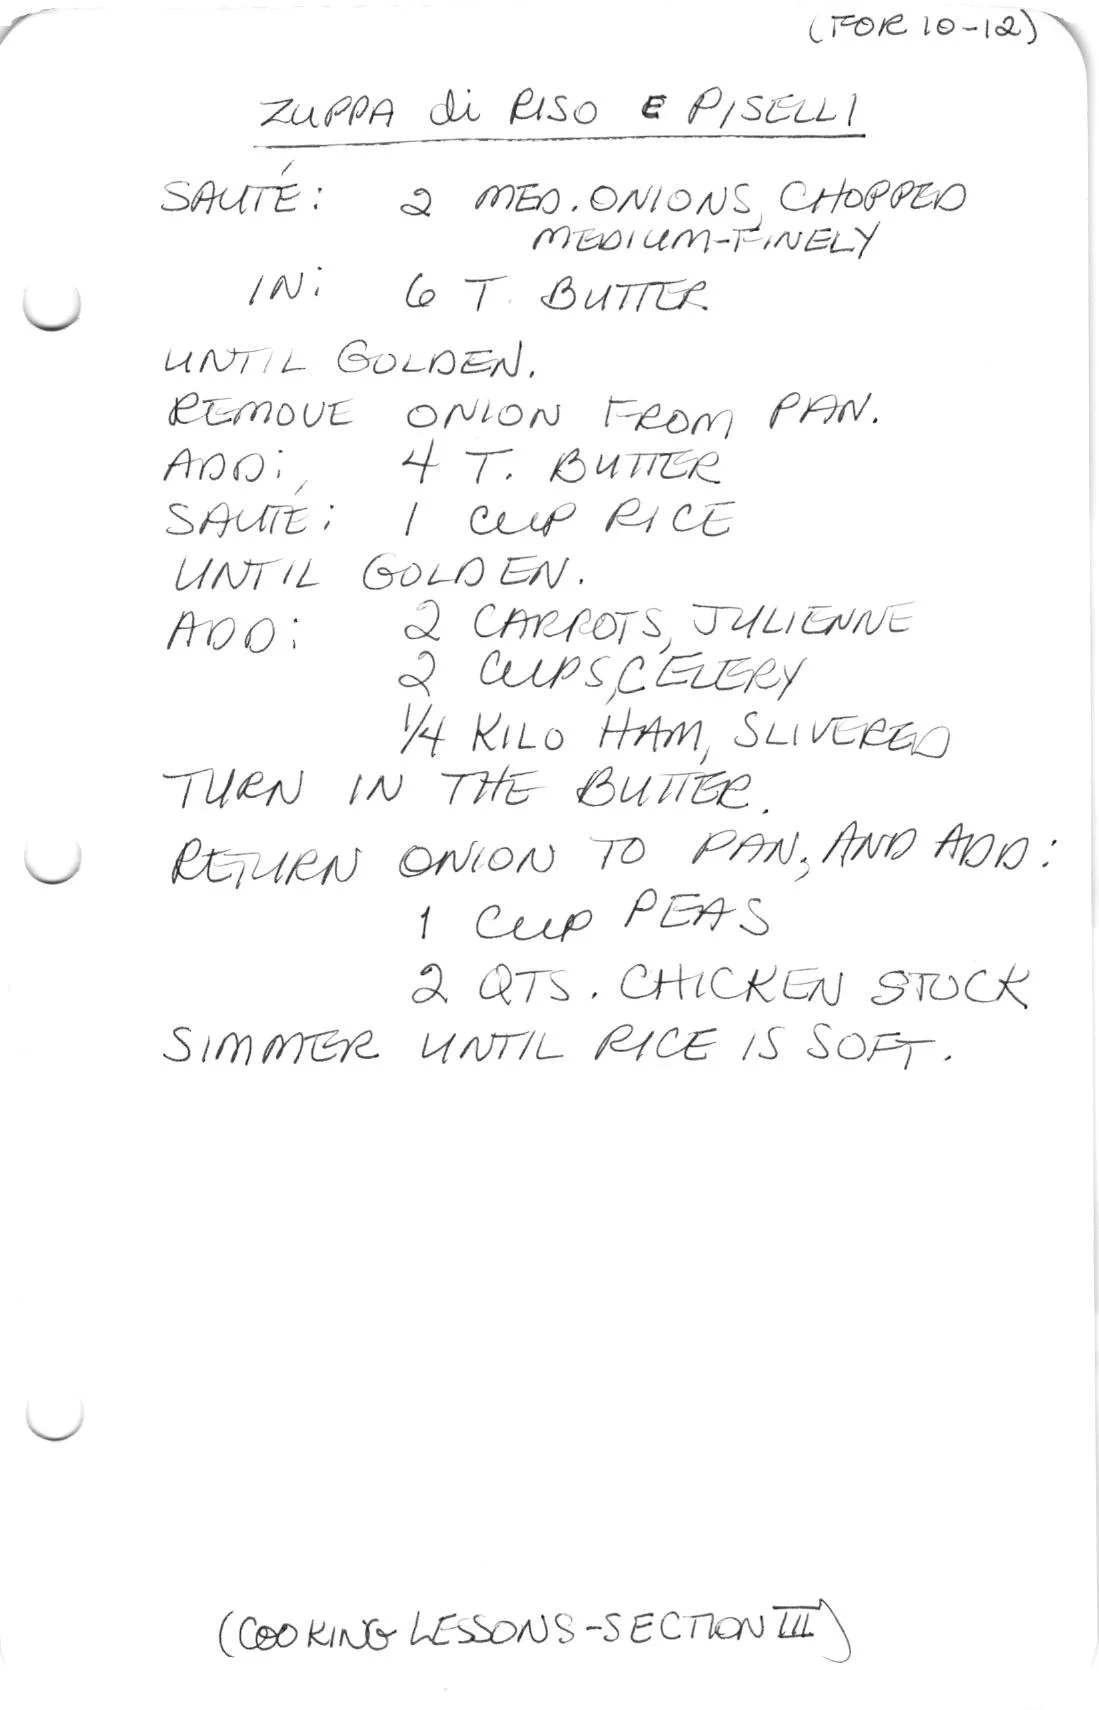 (FOR 10-12)
ZUPPA di RISO E PISELLI
SAUTÉ: 2 MED. ONIONS, CHOPPED
MEDIUM-FINELY
IN: 6 T. BUTTER
UNTIL GOLDEN.
REMOVE ONION FROM PAN.
ADD: 4 T. BUTTER
SAUTÉ: 1 CUP RICE
UNTIL GOLDEN.
ADD: 2 CARROTS, JULIENNE
2 CUPS, CELERY
1/4 KILO HAM, SLIVERED
TURN IN THE BUTTER.
RETURN ONION TO PAN, AND ADD:
1 CUP PEAS
2 QTS. CHICKEN STOCK
SIMMER UNTIL RICE IS SOFT.
(COOKING LESSONS-SECTION III)